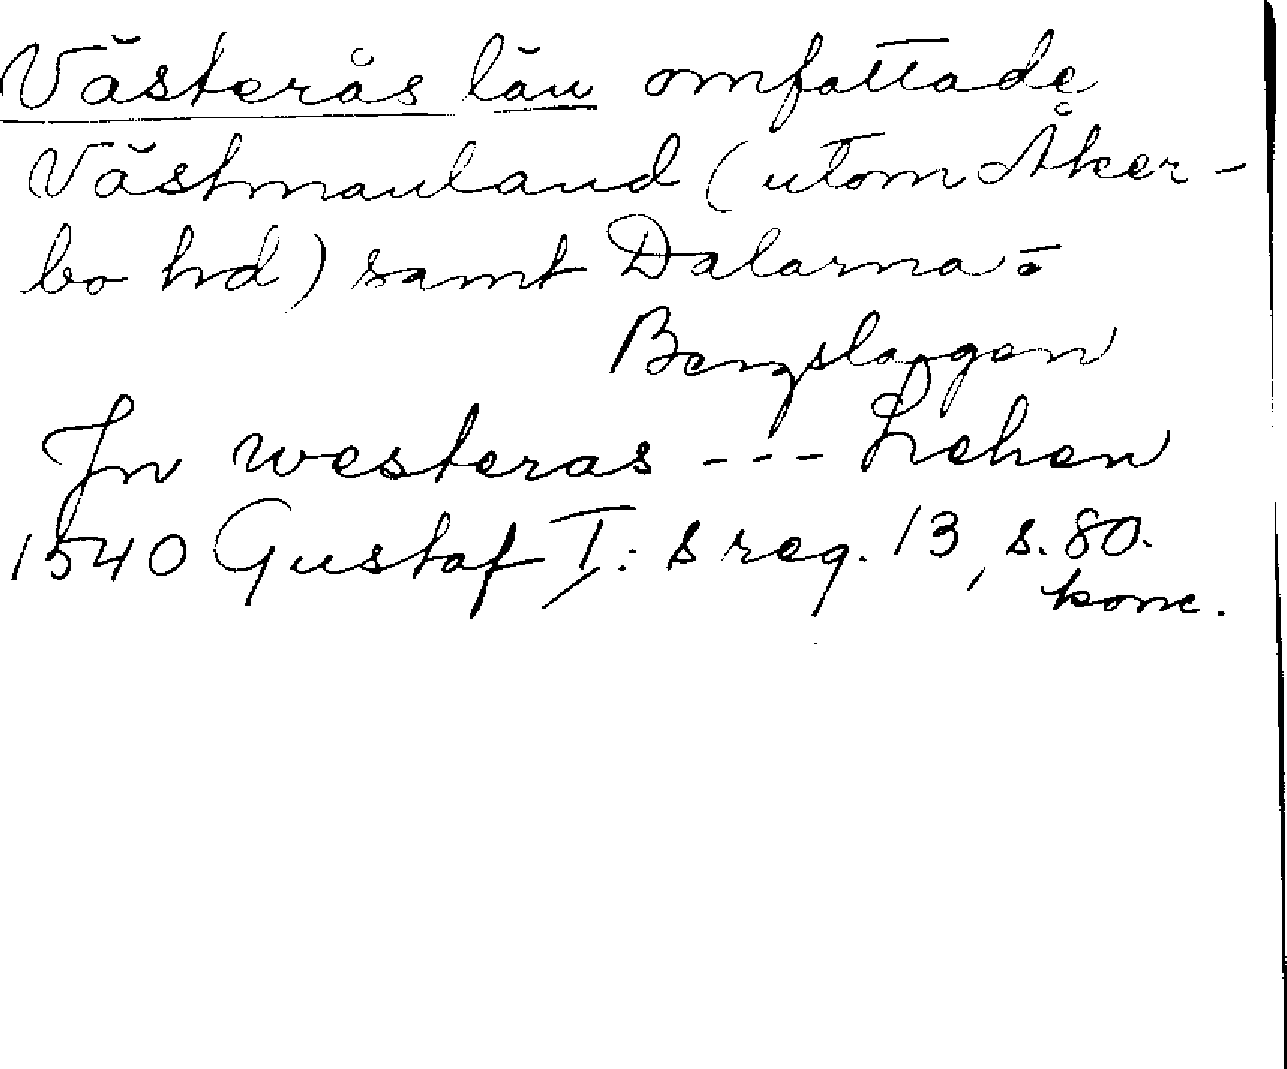 Västerås län omfattade
Västmanland (utom Åker-
bo hd) samt Dalarna o
Bergslagen
Jn westeras --- Lehen
1540 Gustaf I:s reg. 13, s. 80.
konc.